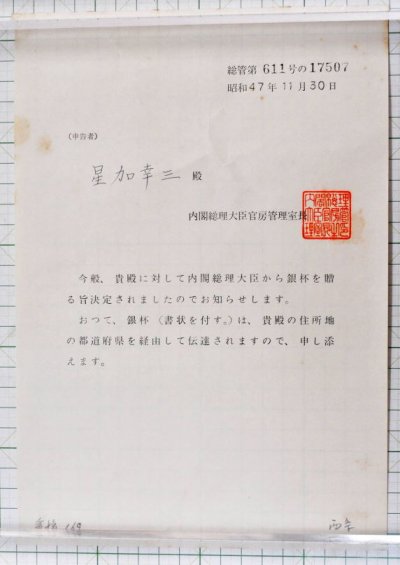 総管第 611号の17507
昭和47年11月30日
（申告者）
星加幸三 殿
内閣総理大臣官房管理室長
今般、貴殿に対して内閣総理大臣から銀杯を贈
る旨決定されましたのでお知らせします。
おつて、銀杯（書状を付す。）は、貴殿の住所地
の都道府県を経由して伝達されますので、申し添
えます。